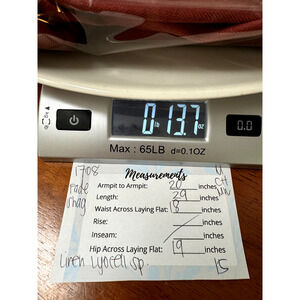 0 lb 13.7 oz
0.0
Max : 65LB d=0.1OZ
1708
Measurements
Armpit to Armpit: 20 inches
Length: 29 inches
Waist Across Laying Flat: 18 inches
Rise: inches
Inseam: inches
Hip Across Laying Flat: 19 inches
Linen Lyocell Sp
15